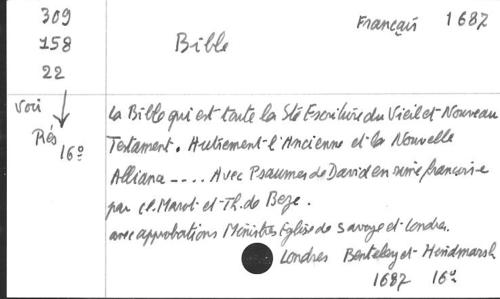 309 Français 1687
158 Bible
22
Voir
Rés 16º
La Bible qui est toute la Ste Escriture du Vieil et Nouveau
Testament. Autrement l'Ancienne et la Nouvelle
Alliance .... Avec Psaumes de David en rime françoise
par Cl. Marot et Th. de Beze.
avec approbations Ministres Eglise de Savoye et Londres.
Londres Benteley et Hindmarsh
1687 16º